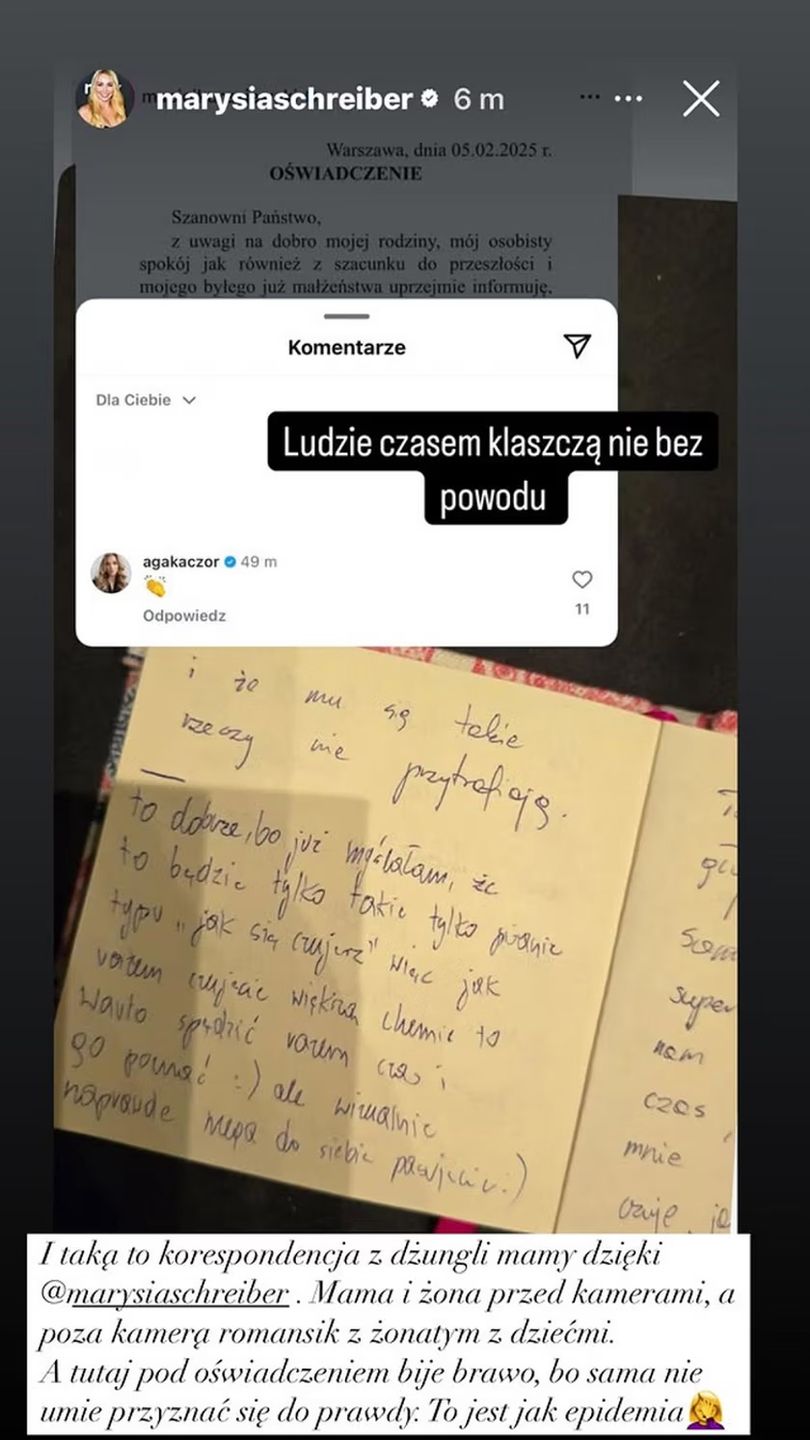 marysiaschreiber 6 m
Warszawa, dnia 05.02.2025 r.
OŚWIADCZENIE
Szanowni Państwo,
z uwagi na dobro mojej rodziny, mój osobisty
spokój jak również z szacunku do przeszłości i
mojego byłego już małżeństwa uprzejmie informuję,
Komentarze
Dla Ciebie
Ludzie czasem klaszczą nie bez
powodu
agakaczor 49 m
👏
Odpowiedz
11
i że mu się takie
rzeczy nie przytrafiają.
to dobrze, bo już myślałam, że
to będzie tylko takie tylko pytanie
typu „jak się czujesz” więc jak
razem czujecie większą chemię to
warto spędzić razem czas i
go poznać :) ale wizualnie
naprawdę mega do siebie pasujecie :)
nam
czas
mnie
I taką to korespondencja z dżungli mamy dzięki
@marysiaschreiber . Mama i żona przed kamerami, a
poza kamerą romansik z żonatym z dziećmi.
A tutaj pod oświadczeniem bije brawo, bo sama nie
umie przyznać się do prawdy. To jest jak epidemia🤦‍♀️